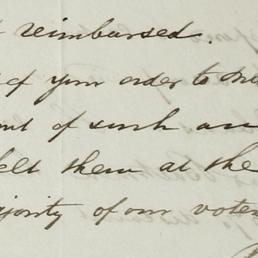 reimbursed.
of your order to
of such an
felt them at the
majority of our